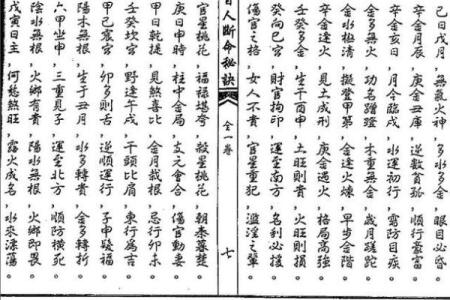 己日戊月，無氣火神，多水多金，眼目必昏。
庚金丑庫，順行豪富。
辛金亥日，月令臨戌，水運初行，露防目疾。
金多無火，功名蹭蹬，木重無金，歲月蹉跎。
金水極清，擬登甲第，金逢火煉，早步金階。
辛金逢火，見土成刑，庚金遇火，格局高強。
壬癸多金，生于酉申，土旺則貴，火旺則損。
癸向巳宮，財官拘印，運至南方，名利必
傷官之格，女人不貴，官星重犯，濫淫之輩。
人斷命秘訣
全一卷
七
官星桃花，福祿堪夸，殺星桃花，朝秦暮楚。
庚日申時，柱中金局，支元會合，傷官妻。
甲日乾提，見煞喜比，金月栽根，忌行卯未。
壬癸坎宮，逢午戌，干頭比肩，東行為吉。
甲己震宮，卯多則，逆順運行，子申福。
陽木無根，生于丑月，水多轉貴，金多轉折。
六甲坐申，三重見子，運至北方，順防橫死。
陰水無根，火鄉有貴，陽水無根，火鄉即畏。
戊寅日主，何愁煞旺，露火成名，水來漂蕩。